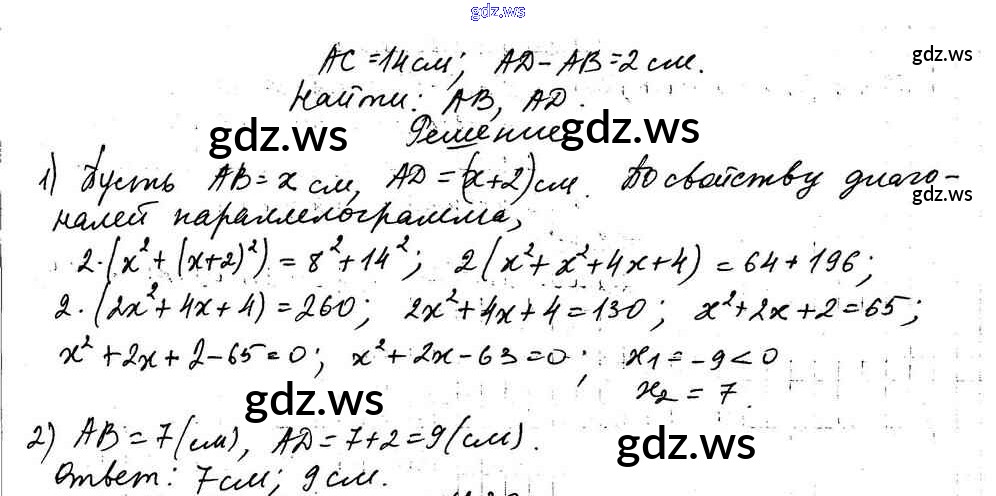 gdz.ws
AC = 14 см; AD - AB = 2 см.
gdz.ws
Найти: AB, AD.
gdz.ws Решение gdz.ws
1) Пусть AB = x см, AD = (x+2) см. По свойству диаго-
gdz.ws
налей параллелограмма,
2·(x² + (x+2)²) = 8² + 14²; 2(x² + x² + 4x + 4) = 64 + 196;
2·(2x² + 4x + 4) = 260; 2x² + 4x + 4 = 130; x² + 2x + 2 = 65;
x² + 2x + 2 - 65 = 0; x² + 2x - 63 = 0; x₁ = -9 < 0
x₂ = 7.
gdz.ws
2) AB = 7 (см), AD = 7 + 2 = 9 (см).
gdz.ws
Ответ: 7 см; 9 см.